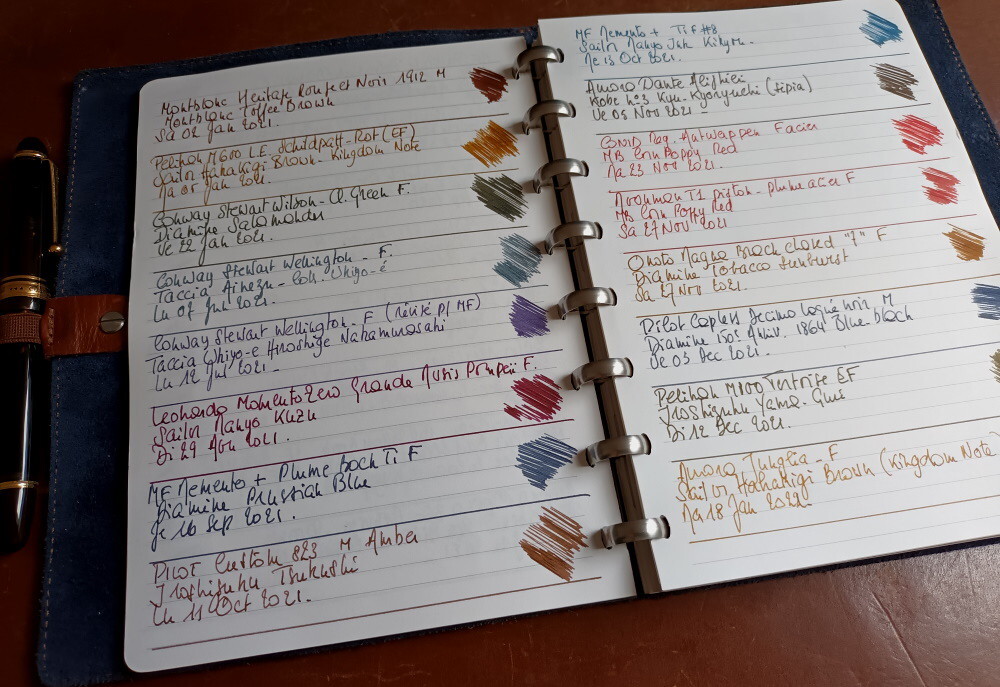 Montblanc Heritage Rouge et Noir 1912 M
Montblanc Toffee Brown
Sa 02 Jan 2021.
Pelikan M600 LE Schildpatt-Rot (EF)
Sailor Hahakigi Brown - Kingdom Note
Ma 05 Jan 2021.
Conway Stewart Wilson - Cl. Green F.
Diamine Salamander
Ve 22 Jan 2021.
Conway Stewart Wellington - F.
Taccia Ainezu - Coll. Ukiyo-é
Lu 07 Jun 2021.
Conway Stewart Wellington - F (révisé p/ MF)
Taccia Ukiyo-e Hiroshige Nakamurasaki
Lu 12 Jul 2021.
Leonardo Momento Zero Grande Muris Pompeii F.
Sailor Manyo Kuzu
Di 29 Aou 2021.
MF Memento + Plume Bock Ti F
Diamine Prussian Blue
Je 16 Sep 2021.
PILOT Custom 823 M Amber
Iroshizuku Tsukushi
Lu 11 Oct 2021.
MF Memento + Ti F #8
Sailor Manyo Ink
Me 13 Oct 2021.
Aurora Dante Alighieri
Kobe n°3 Kyu-Kyoryuchi (sepia)
Ve 05 Nov 2021.
MB Corn Poppy Red
Ma 23 Nov 2021
Moonman T1 piston - plume acier F
MB Corn Poppy Red
Sa 27 Nov 2021
Onoto Magna Black closed "7" F
Diamine Tobacco Sunburst
Sa 27 Nov 2021.
Pilot Capless Decimo laqué noir M
Diamine 150s Aniv. 1864 Blue-black
Ve 03 Dec 2021.
Pelikan M800 EF
Iroshizuku Yama-Guri
Di 12 Dec 2021.
Aurora Jungla - F
Sailor Hahakigi Brown (Kingdom Note
Ma 18 Jan 2022